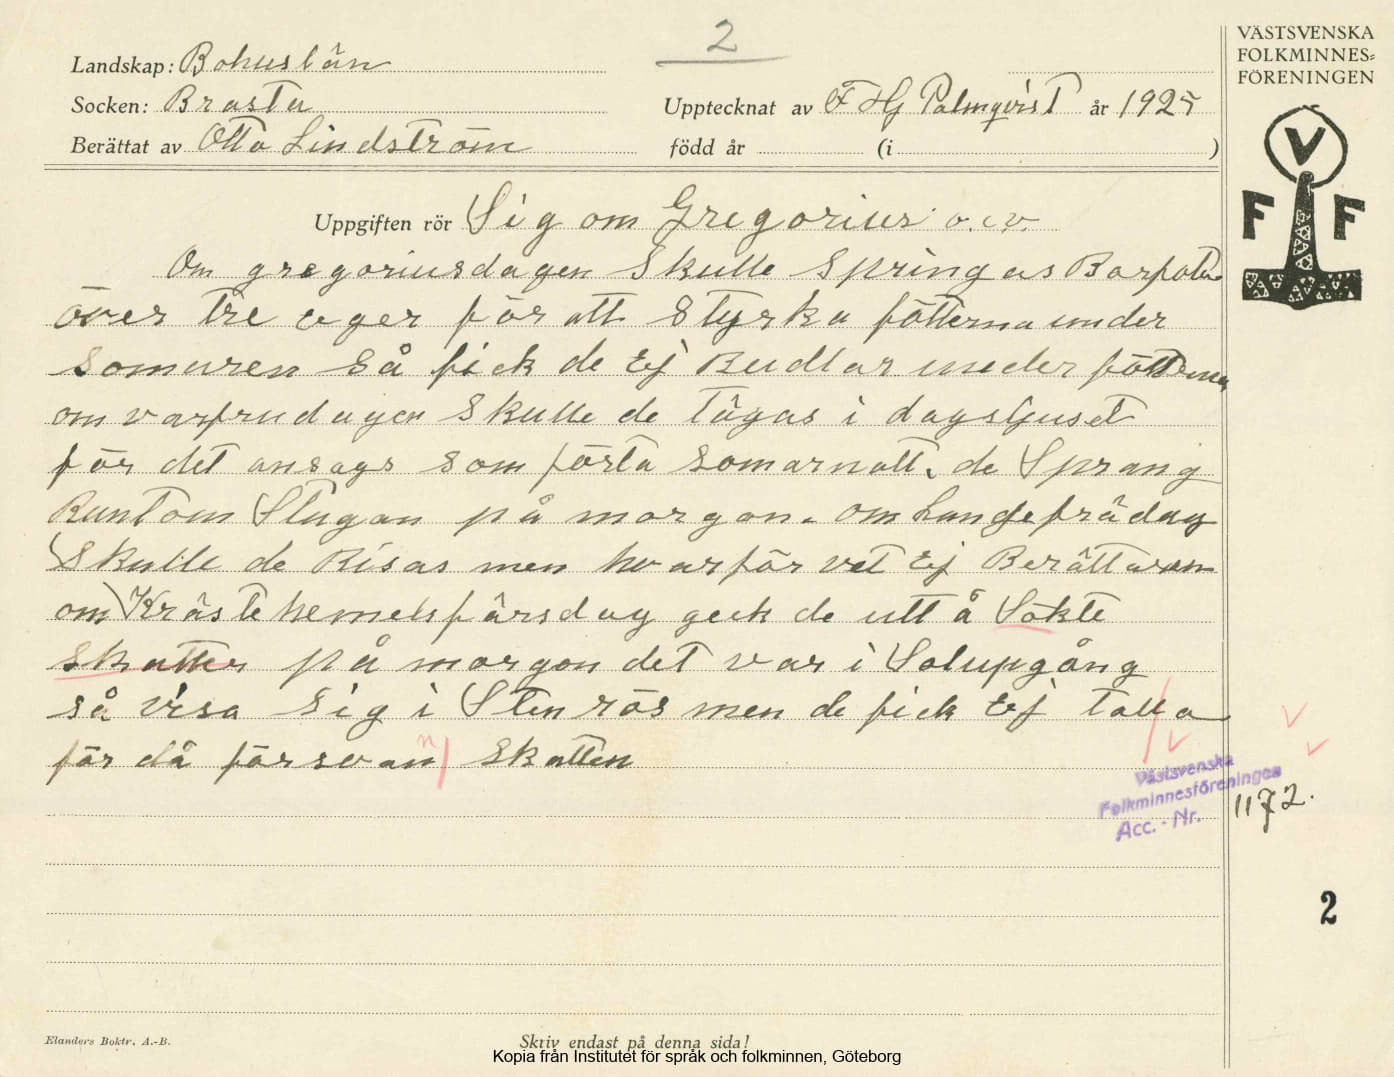 2
VÄSTSVENSKA
FOLKMINNES=
FÖRENINGEN
V
F F
Landskap: Bohuslän
Socken: Brasta
Upptecknat av F Hj Palmqvist år 1925
Berättat av Otto Lindström
född år (i )
Uppgiften rör Sig om Gregorius o.s.v.
Om gregoriusdagen skulle springas Barfota
över tre eger för att Styrka fötterna under
somaren så fick de Ej Budlar under fötterna
om varfrudagen skulle de lägas i dagsljuset
för det ansags som första somarnatt. de Sprang
Runtom Stugan på morgon. om Langefrädag
Skulle de Risas men hvarför vet Ej Berättaren
om Kräste hemelsfärsdag geck de utt å Sökte
skatter på morgon det var i Solupgång
så visa sig i Stenrös men de fick Ej talla
för då försvan n skatten
Västsvenska
Folkminnesföreningen
Acc. - Nr. 1172.
2
Elanders Boktr. A.-B.
Skriv endast på denna sida!
Kopia från Institutet för språk och folkminnen, Göteborg